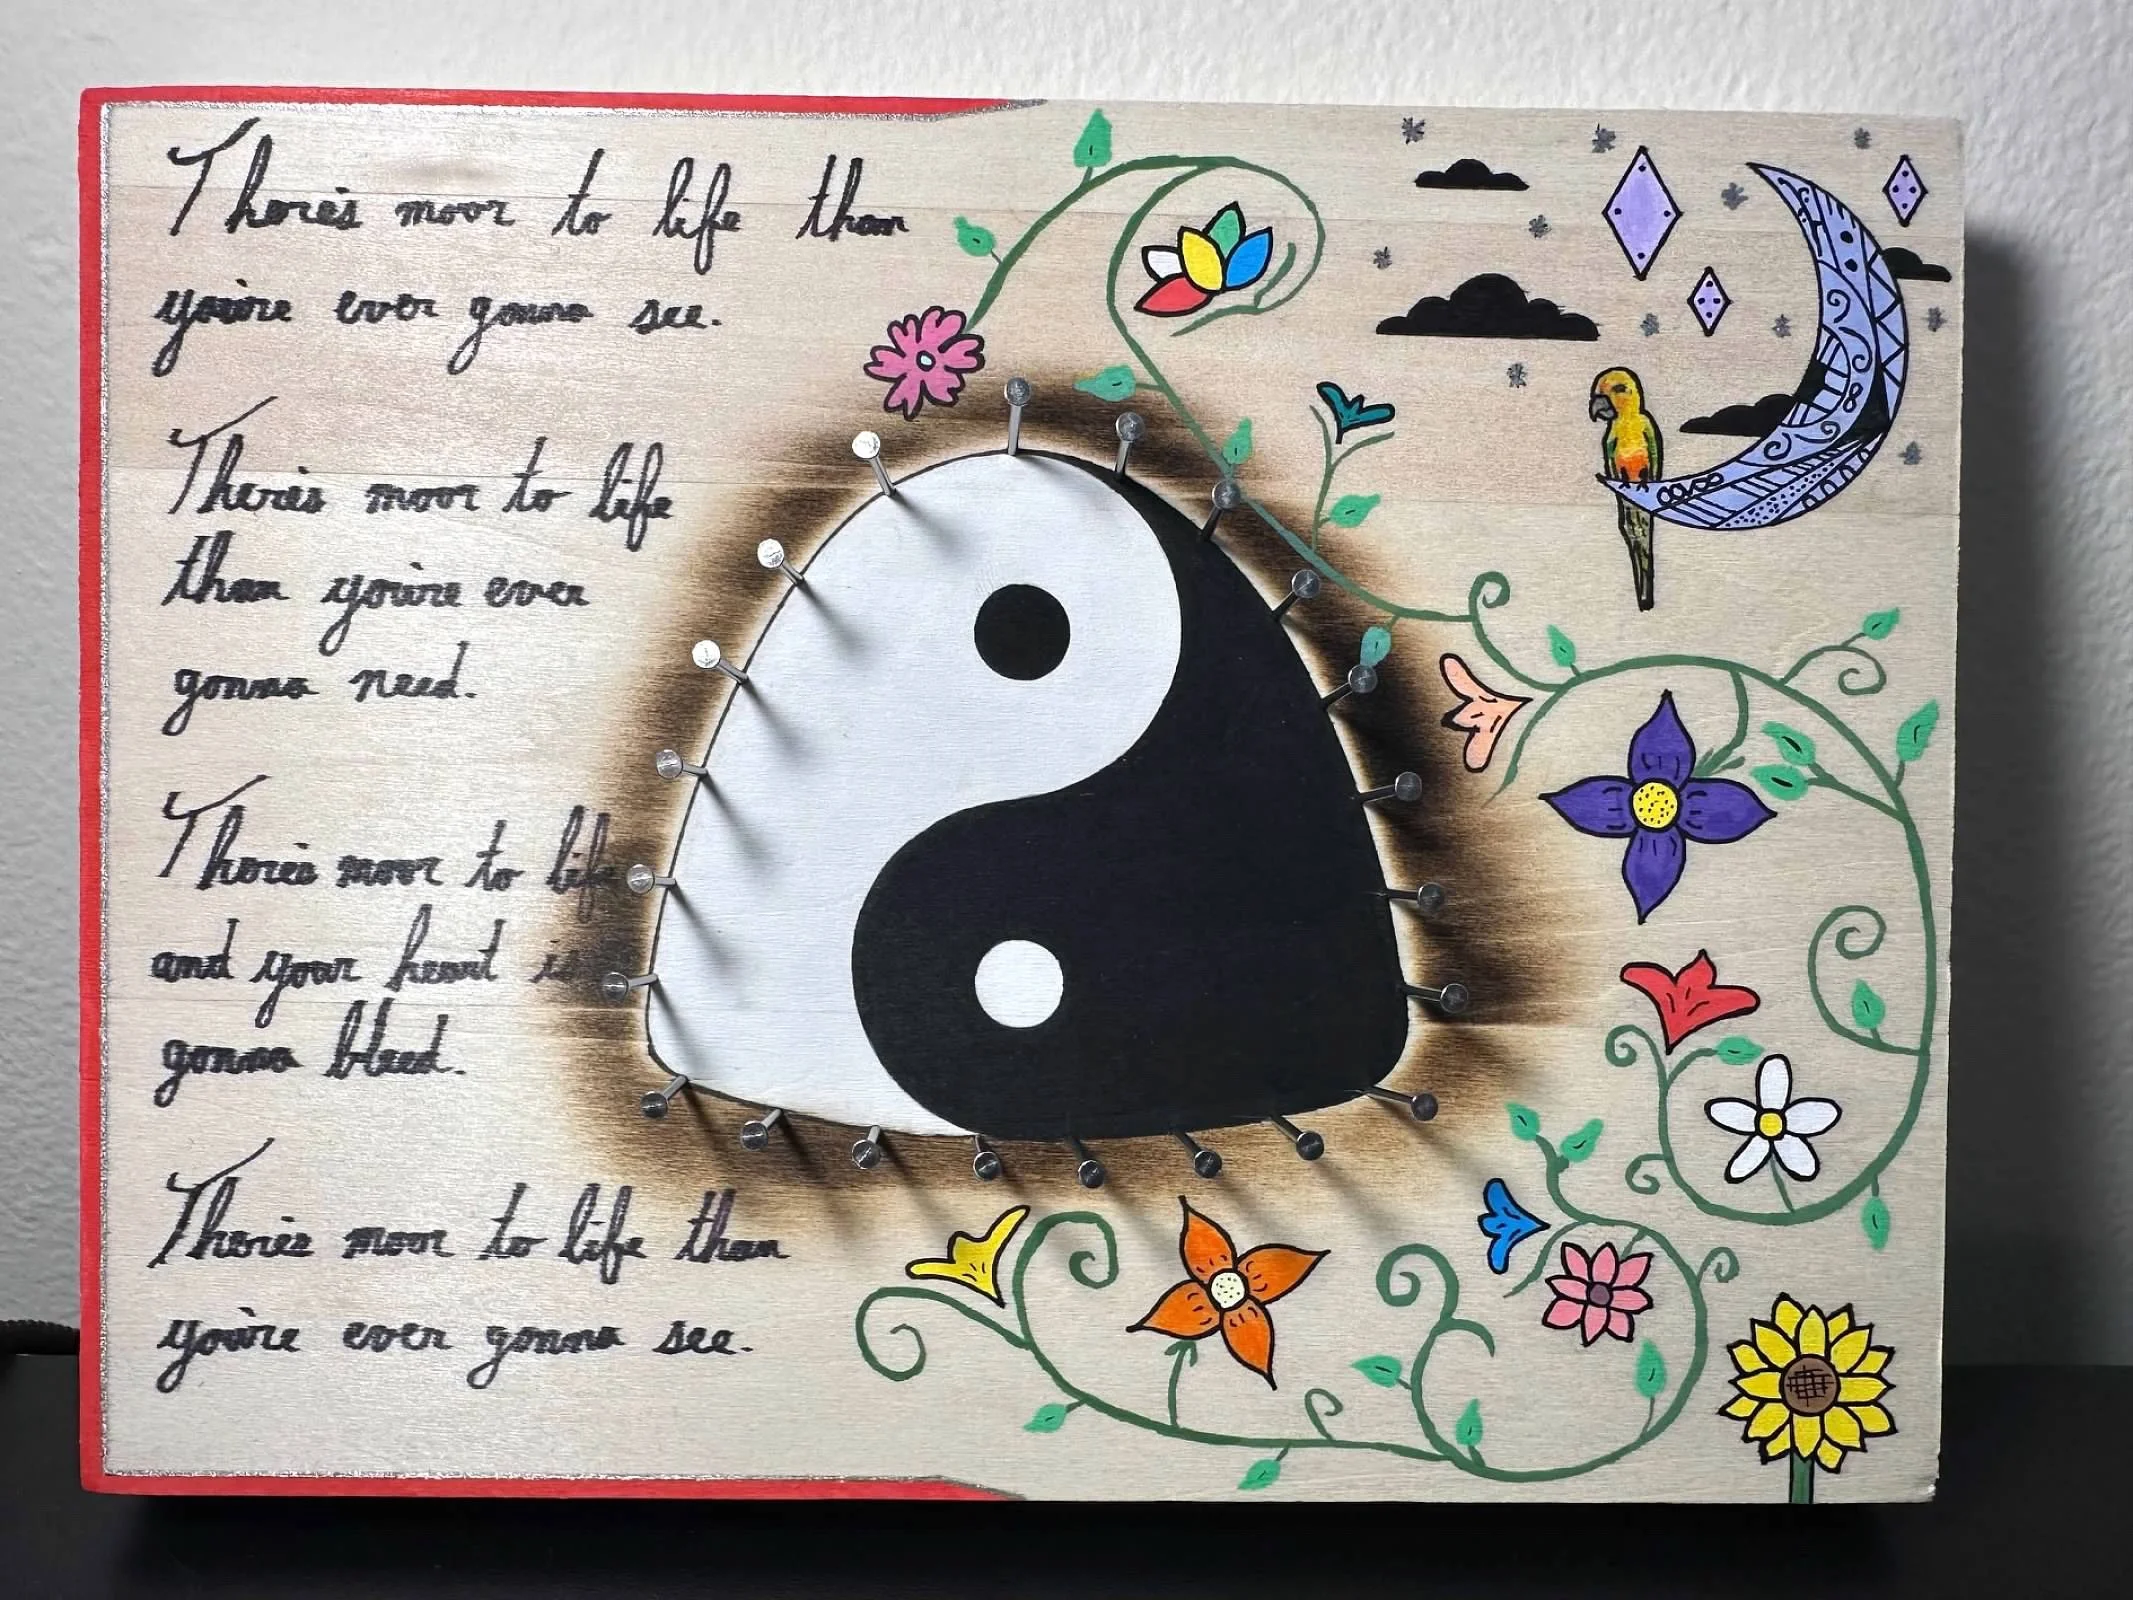 There's moor to life than
you're ever gonna see.
There's moor to life
than you're ever
gonna need.
There's moor to life
and your heart is
gonna bleed.
There's moor to life than
you're ever gonna see.